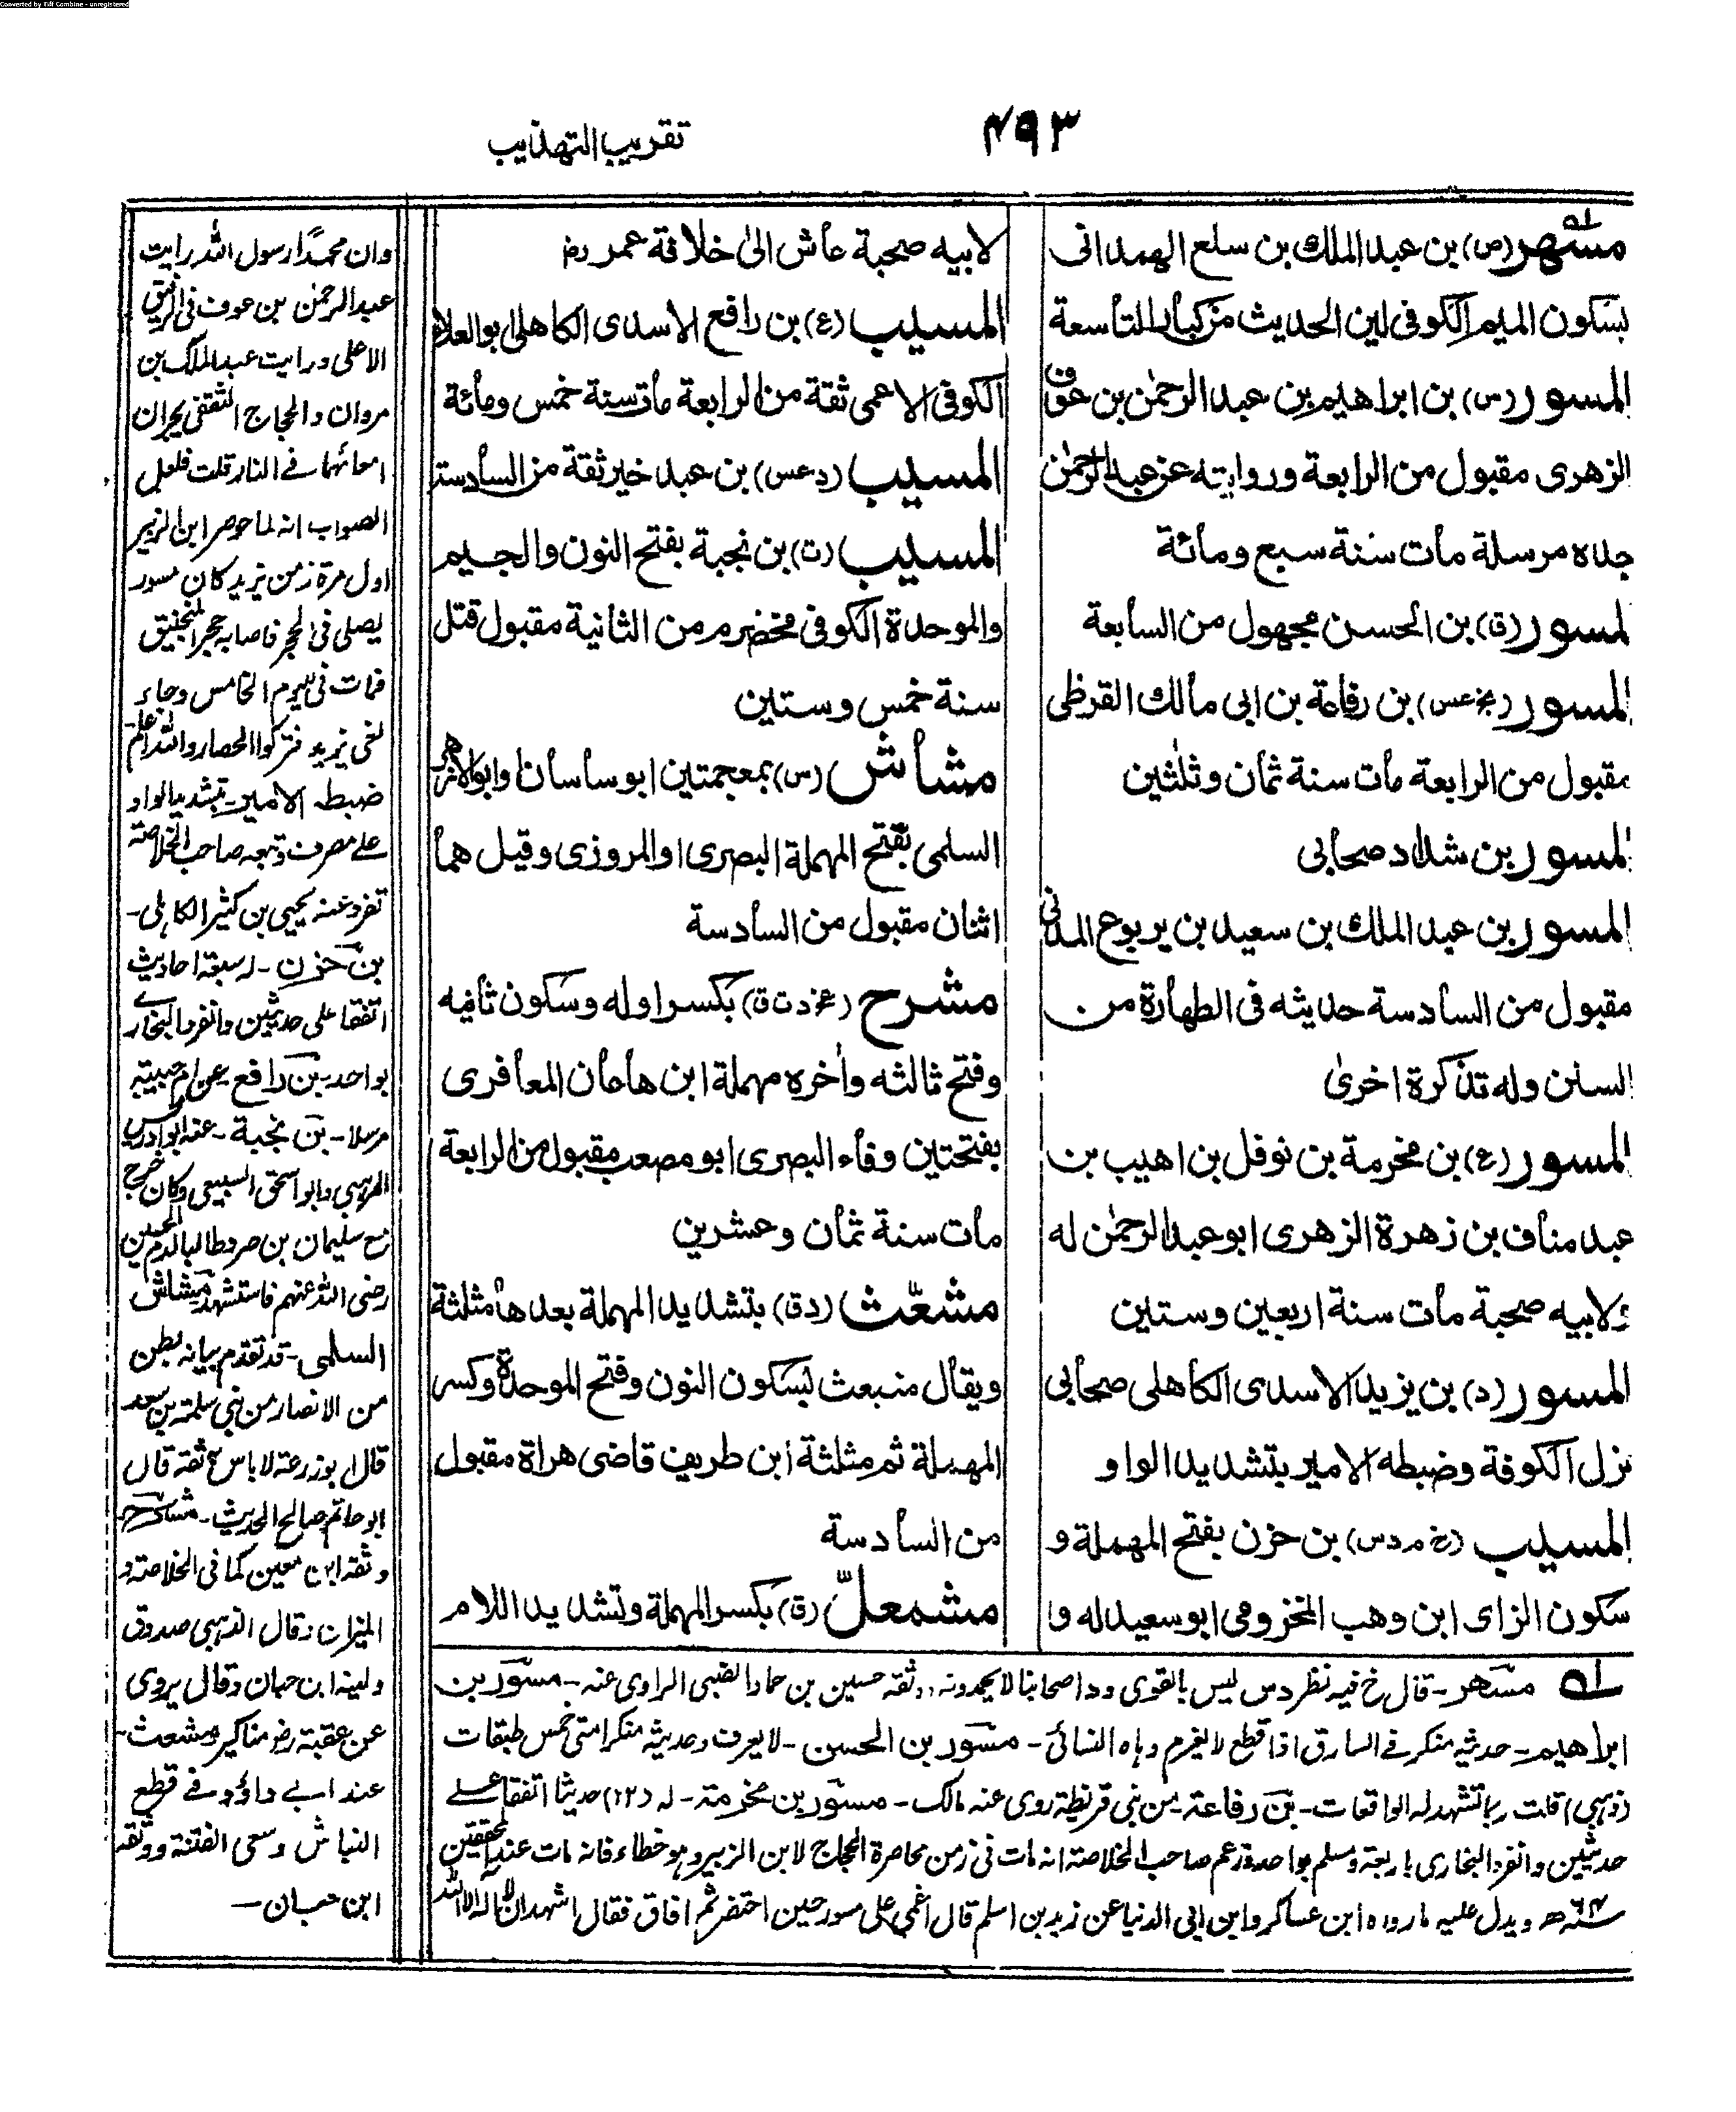 Converted by Tiff Combine - unregistered
۴۹۳
تقريب التهذيب
مسهر (ص) بن عبد الملك بن سلع الهمدانی
بسكون الميم الكوفی لين الحديث من كبار التاسعة
المسور (س) بن ابراهيم بن عبد الرحمن بن عوف
الزهری مقبول من الرابعة وروايته عن عبد الرحمٰن
جده مرسلة مات سنة سبع ومائة
لمسور (ق) بن الحسن مجهول من السابعة
المسور (بخ عس) بن رفاعة بن ابی مالك القرظی
مقبول من الرابعة مات سنة ثمان وثلثين
لمسور بن شداد صحابی
المسور بن عبد الملك بن سعيد بن يربوع المدنی
مقبول من السادسة حديثه فی الطهارة من
السنن وله تذكرة اخریٰ
المسور (ع) بن مخرمة بن نوفل بن اهيب بن
عبد مناف بن زهرة الزهری ابو عبد الرحمٰن له
ولابيه صحبة مات سنة اربعين وستين
المسور (د) بن يزيد الاسدی الكاهلی صحابی
نزل الكوفة وضبطه الامير بتشديد الواو
المسيب (خ م د س) بن حزن بفتح المهملة و
سكون الزای ابن وهب المخزومی ابو سعيد له و
لابيه صحبة عاش الیٰ خلافة عمر رض
المسيب (ع) بن رافع الاسدی الكاهلی ابو العلاء
الكوفی الاعمی ثقة من الرابعة مات سنة خمس ومائة
المسيب (د عس) بن عبد خير ثقة من السادسة
المسيب (ت) بن نجبة بفتح النون والجيم
والموحدة الكوفی مخضرم من الثانية مقبول قتل
سنة خمس وستين
مشاش (س) بمعجمتين ابو ساسان او ابو الازهر
السلمی بفتح المهملة البصری او المروزی وقيل هما
اثنان مقبول من السادسة
مشرح (عخ د ت ق) بكسر اوله وسكون ثانيه
وفتح ثالثه واٰخره مهملة ابن هاعان المعافری
بفتحتين وفاء البصری ابو مصعب مقبول من الرابعة
مات سنة ثمان وعشرين
مشعّث (د ق) بتشديد المهملة بعدها مثلثة
ويقال منبعث بسكون النون وفتح الموحدة وكسر
المهملة ثم مثلثة ابن طريف قاضی هراة مقبول
من السادسة
مشمعلّ (ق) بكسر المهملة وتشديد اللام
له مسهر۔ قال خ فيه نظر د س ليس بالقوی ود اصحابنا لا يحمدونه، وثقه حسين بن حماد الضبی الراوی عنه۔ مسور بن
ابراهيم۔ حديثه منكر فی السارق اذا قطع لا يغرم رواه النسائی۔ مسور بن الحسن۔ لا يعرف وحديثه منكر امتی خمس طبقات
(ذهبی) قلت ربما تشهد له الواقعات۔ بن رفاعة۔ من بنی قريظة روی عنه مالك۔ مسور بن مخرمة۔ له (۲۲) حديثا اتفقا علی
حديثين وانفرد البخاری باربعة ومسلم بواحد وزعم صاحب الخلاصة انه مات فی زمن محاصرة الحجاج لابن الزبير وهو خطاء فانه مات عند المحققين
سنة ۶۴ھ ويدل عليه ما رواه ابن عساكر وابن ابی الدنيا عن زيد بن اسلم قال اغمی علی مسور حين احتضر ثم افاق فقال اشهد ان لا اله الا الله
وان محمدًا رسول الله رايت
عبد الرحمٰن بن عوف فی الرفيق
الاعلی ورايت عبد الملك بن
مروان والحجاج الثقفی يجران
امعائهما فی النار قلت فلعل
الصواب انه لما حوصر ابن الزبير
اول مرة زمن يزيد كان مسور
يصلی فی الحجر فاصابه حجر المنجنيق
فمات فی اليوم الخامس وجاء
نعی يزيد فتركوا الحصار والله اعلم
ضبطه الامير۔ بتشديد الواو
علی مصرف وتبعه صاحب الخلاصة
تفرد عنه يحيی بن كثير الكاهلی۔
بن حزن۔ له سبعة احاديث
اتفقا علی حديثين وانفرد البخاری
بواحد۔ بن رافع عن ام حبيبة
مرسلا۔ بن نجبة۔ عنه ابو ادريس
المرهبی وابو اسحٰق السبيعی وكان خرج
مع سليمان بن صرد طالبا لدم الحسين
رضی الله عنهم فاستشهد مشاش
السلمی۔ قد تقدم بيانه بطن
من الانصار من بنی سلمة بن سعد
قال ابو زرعة لا باس به ثقة قال
ابو حاتم صالح الحديث۔ مشرح
وثقه ابن معين كما فی الخلاصة و
الميزان وقال الذهبی صدوق
ولينه ابن حبان وقال يروی
عن عقبة رض مناكير مشعث۔
عند ابی داؤد فی قطع
النباش وسعی الفتنة ووثقه
ابن حبان۔